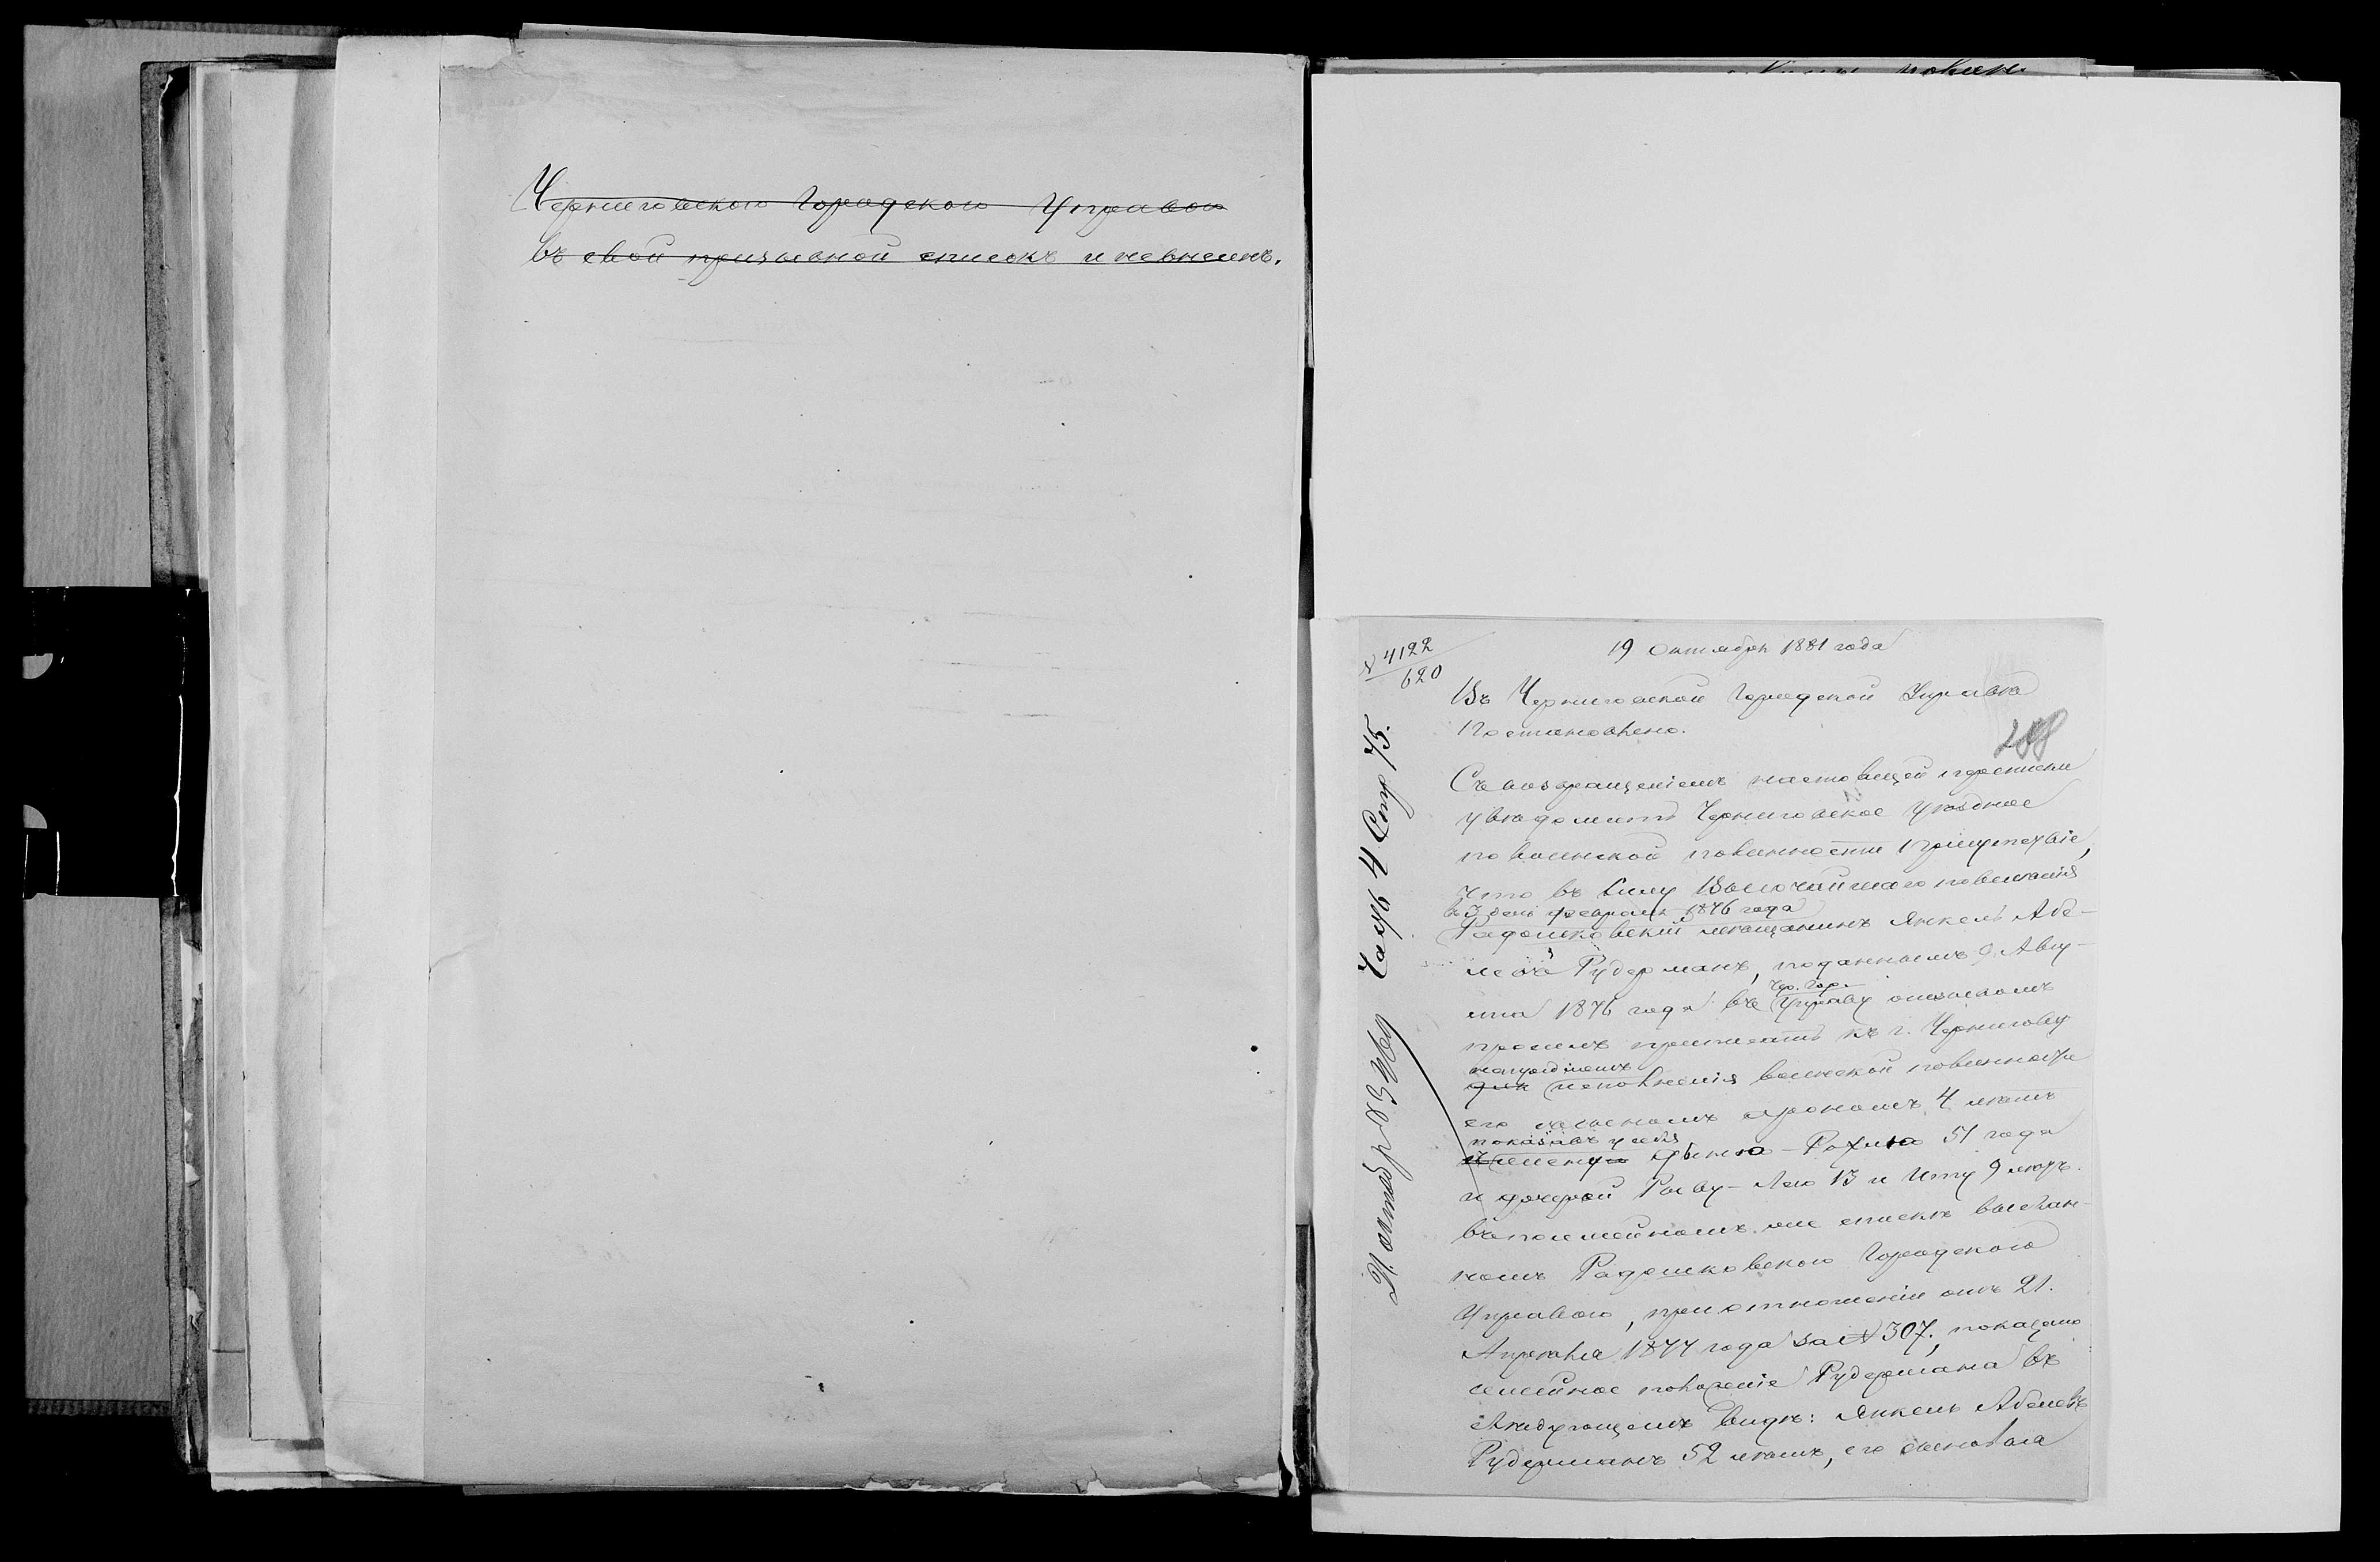 Черниговскою Городскою Управою
въ свой призывной списокъ и невнесенъ.
№ 4122/620
19 Октября 1881 года
Въ Черниговской Городской Управѣ
Постановлено.
288
Съ возвращеніемъ настоящей переписки
увѣдомить Черниговское уѣздное
по воинской повинности присутствіе,
что въ силу Высочайшаго повелѣнія
въ 3 день февраля 1876 года
Радошковскій мѣщанинъ Янкель Абе-
левъ Рудерманъ, поданнымъ 9 Авгу-
ста 1876 года въ Чер. Гор. Управу отзывомъ
просилъ приписать къ г. Чернигову
исполненія воинской повинности
его
показавъ у себя
жену 51 года
и дочерей Рысву-Лею 13 и Иту 9 лѣтъ.
въ посемейномъ же спискѣ выслан-
номъ Радошковскою Городскою
Управою, при отношеніи отъ 21.
Апрѣля 1877 года за № 307, показано
семейное положеніе Рудермана въ
слѣдующемъ видѣ: Янкель Абелевъ
Рудерманъ 52 лѣтъ, его сыновья
21 октября
Часть 4 Стр 75.